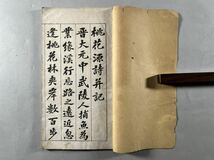 桃花源詩并記
晉太元中武陵人捕魚為
業緣溪行忘路之遠近忽
逢桃花林夾岸數百步